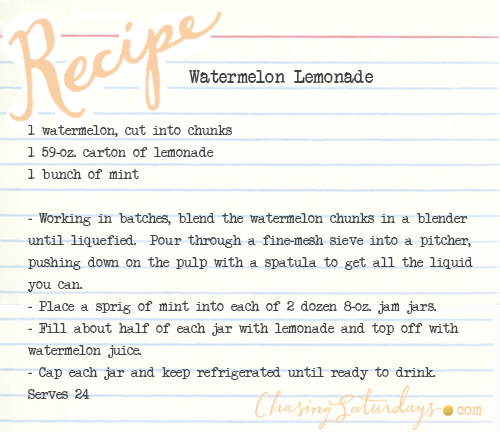 Recipe
Watermelon Lemonade
1 watermelon, cut into chunks
1 59-oz. carton of lemonade
1 bunch of mint
- Working in batches, blend the watermelon chunks in a blender
until liquefied. Pour through a fine-mesh sieve into a pitcher,
pushing down on the pulp with a spatula to get all the liquid
you can.
- Place a sprig of mint into each of 2 dozen 8-oz. jam jars.
- Fill about half of each jar with lemonade and top off with
watermelon juice.
- Cap each jar and keep refrigerated until ready to drink.
Serves 24
ChasingSaturdays.com